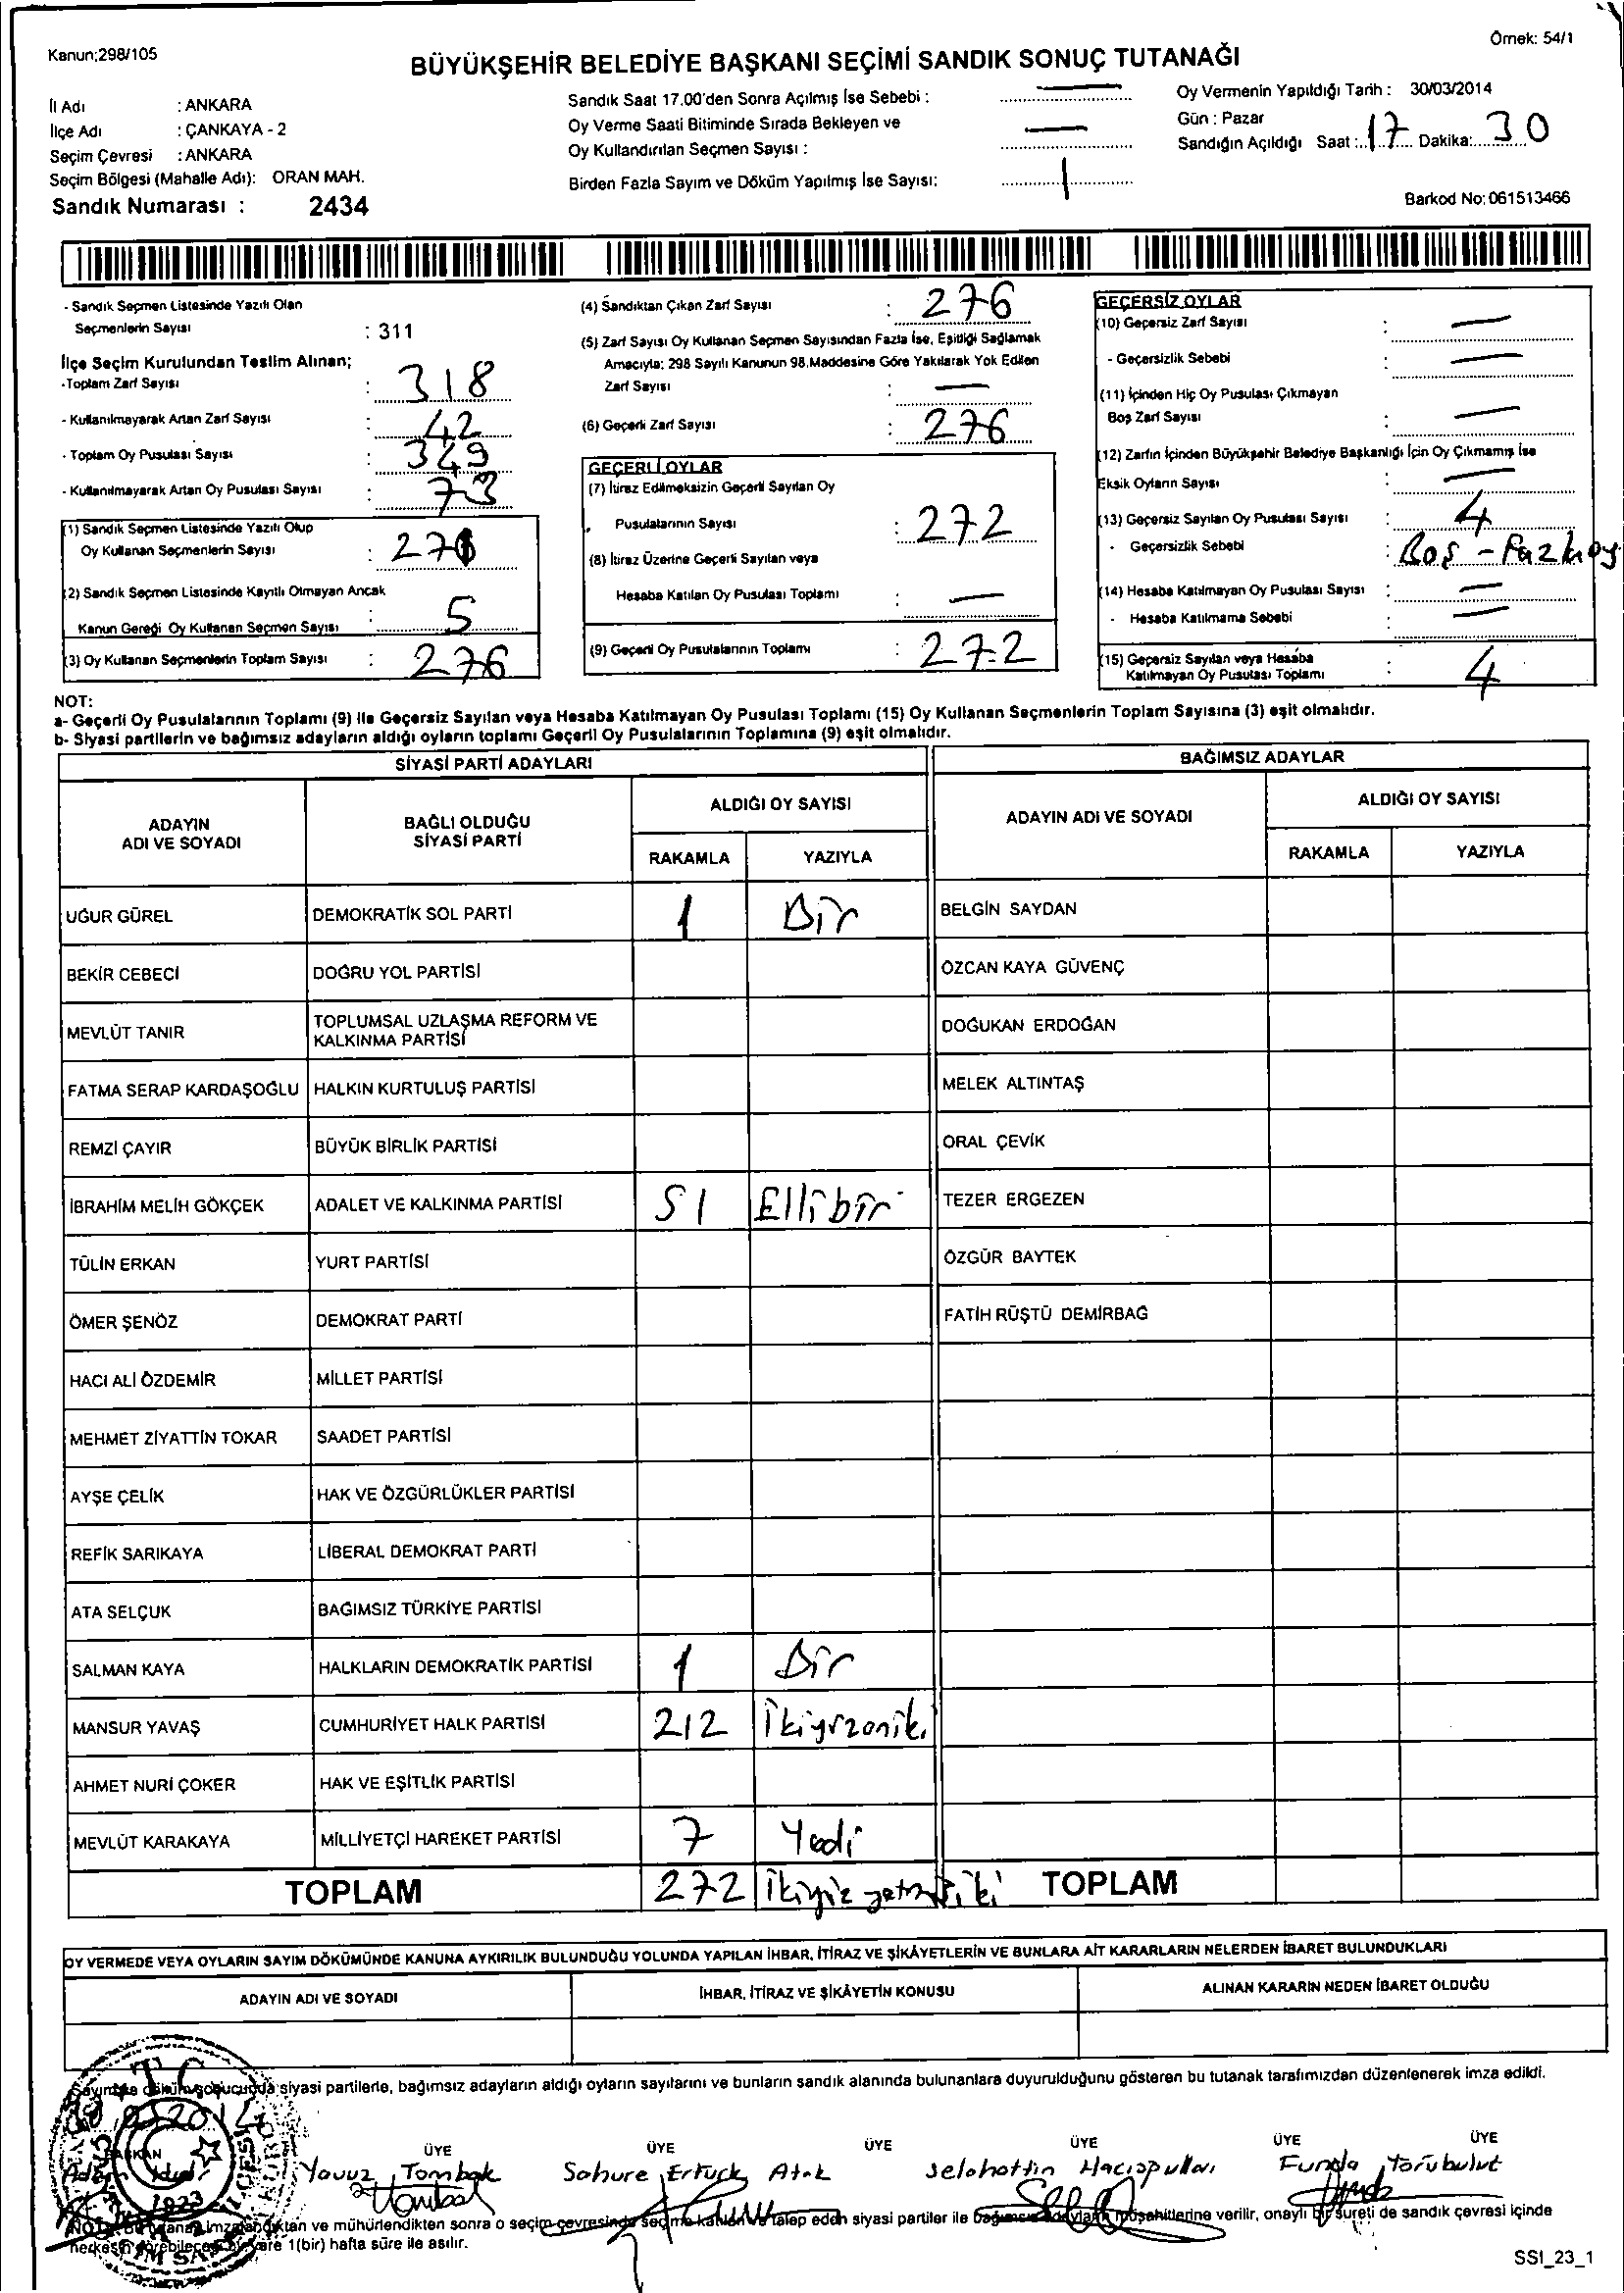 Kanun;298/105
Örnek: 54/1
BÜYÜKŞEHİR BELEDİYE BAŞKANI SEÇİMİ SANDIK SONUÇ TUTANAĞI
İl Adı : ANKARA
İlçe Adı : ÇANKAYA - 2
Seçim Çevresi : ANKARA
Seçim Bölgesi (Mahalle Adı): ORAN MAH.
Sandık Numarası : 2434
Sandık Saat 17.00'den Sonra Açılmış İse Sebebi : —
Oy Verme Saati Bitiminde Sırada Bekleyen ve
Oy Kullandırılan Seçmen Sayısı : —
Birden Fazla Sayım ve Döküm Yapılmış İse Sayısı: 1
Oy Vermenin Yapıldığı Tarih : 30/03/2014
Gün : Pazar
Sandığın Açıldığı Saat : 17 Dakika: 30
Barkod No: 061513466
- Sandık Seçmen Listesinde Yazılı Olan
Seçmenlerin Sayısı : 311
İlçe Seçim Kurulundan Teslim Alınan;
-Toplam Zarf Sayısı : 318
- Kullanılmayarak Artan Zarf Sayısı : 42
- Toplam Oy Pusulası Sayısı : 349
- Kullanılmayarak Artan Oy Pusulası Sayısı : 73
(1) Sandık Seçmen Listesinde Yazılı Olup
Oy Kullanan Seçmenlerin Sayısı :
(2) Sandık Seçmen Listesinde Kayıtlı Olmayan Ancak
Kanun Gereği Oy Kullanan Seçmen Sayısı : 5
(3) Oy Kullanan Seçmenlerin Toplam Sayısı : 276
(4) Sandıktan Çıkan Zarf Sayısı : 276
(5) Zarf Sayısı Oy Kullanan Seçmen Sayısından Fazla İse, Eşitliği Sağlamak
Amacıyla; 298 Sayılı Kanunun 98.Maddesine Göre Yakılarak Yok Edilen
Zarf Sayısı : —
(6) Geçerli Zarf Sayısı : 276
GEÇERLİ OYLAR
(7) İtiraz Edilmeksizin Geçerli Sayılan Oy
Pusulalarının Sayısı : 272
(8) İtiraz Üzerine Geçerli Sayılan veya
Hesaba Katılan Oy Pusulası Toplamı : —
(9) Geçerli Oy Pusulalarının Toplamı : 272
GEÇERSİZ OYLAR
(10) Geçersiz Zarf Sayısı : —
- Geçersizlik Sebebi : —
(11) İçinden Hiç Oy Pusulası Çıkmayan
Boş Zarf Sayısı : —
(12) Zarfın İçinden Büyükşehir Belediye Başkanlığı İçin Oy Çıkmamış İse
Eksik Oyların Sayısı : —
(13) Geçersiz Sayılan Oy Pusulası Sayısı : 4
- Geçersizlik Sebebi : Boş - Fazla oy
(14) Hesaba Katılmayan Oy Pusulası Sayısı : —
- Hesaba Katılmama Sebebi : —
(15) Geçersiz Sayılan veya Hesaba
Katılmayan Oy Pusulası Toplamı : 4
NOT:
a- Geçerli Oy Pusulalarının Toplamı (9) ile Geçersiz Sayılan veya Hesaba Katılmayan Oy Pusulası Toplamı (15) Oy Kullanan Seçmenlerin Toplam Sayısına (3) eşit olmalıdır.
b- Siyasi partilerin ve bağımsız adayların aldığı oyların toplamı Geçerli Oy Pusulalarının Toplamına (9) eşit olmalıdır.
SİYASİ PARTİ ADAYLARI BAĞIMSIZ ADAYLAR
ADAYIN ADI VE SOYADI BAĞLI OLDUĞU SİYASİ PARTİ ALDIĞI OY SAYISI ADAYIN ADI VE SOYADI ALDIĞI OY SAYISI
RAKAMLA YAZIYLA RAKAMLA YAZIYLA
UĞUR GÜREL DEMOKRATİK SOL PARTİ 1 Bir BELGİN SAYDAN
BEKİR CEBECİ DOĞRU YOL PARTİSİ ÖZCAN KAYA GÜVENÇ
MEVLÜT TANIR TOPLUMSAL UZLAŞMA REFORM VE KALKINMA PARTİSİ DOĞUKAN ERDOĞAN
FATMA SERAP KARDAŞOĞLU HALKIN KURTULUŞ PARTİSİ MELEK ALTINTAŞ
REMZİ ÇAYIR BÜYÜK BİRLİK PARTİSİ ORAL ÇEVİK
İBRAHİM MELİH GÖKÇEK ADALET VE KALKINMA PARTİSİ 51 Ellibir TEZER ERGEZEN
TÜLİN ERKAN YURT PARTİSİ ÖZGÜR BAYTEK
ÖMER ŞENÖZ DEMOKRAT PARTİ FATİH RÜŞTÜ DEMİRBAĞ
HACI ALİ ÖZDEMİR MİLLET PARTİSİ
MEHMET ZİYATTİN TOKAR SAADET PARTİSİ
AYŞE ÇELİK HAK VE ÖZGÜRLÜKLER PARTİSİ
REFİK SARIKAYA LİBERAL DEMOKRAT PARTİ
ATA SELÇUK BAĞIMSIZ TÜRKİYE PARTİSİ
SALMAN KAYA HALKLARIN DEMOKRATİK PARTİSİ 1 Bir
MANSUR YAVAŞ CUMHURİYET HALK PARTİSİ 212 İkiyüzoniki
AHMET NURİ ÇOKER HAK VE EŞİTLİK PARTİSİ
MEVLÜT KARAKAYA MİLLİYETÇİ HAREKET PARTİSİ 7 Yedi
TOPLAM 272 İkiyüz yetmişiki TOPLAM
OY VERMEDE VEYA OYLARIN SAYIM DÖKÜMÜNDE KANUNA AYKIRILIK BULUNDUĞU YOLUNDA YAPILAN İHBAR, İTİRAZ VE ŞİKÂYETLERİN VE BUNLARA AİT KARARLARIN NELERDEN İBARET BULUNDUKLARI
ADAYIN ADI VE SOYADI İHBAR, İTİRAZ VE ŞİKÂYETİN KONUSU ALINAN KARARIN NEDEN İBARET OLDUĞU
siyasi partilerle, bağımsız adayların aldığı oyların sayılarını ve bunların sandık alanında bulunanlara duyurulduğunu gösteren bu tutanak tarafımızdan düzenlenerek imza edildi.
T.C.
BAŞKAN ÜYE ÜYE ÜYE ÜYE ÜYE ÜYE
Yavuz Tombak Sahure Ertürk Atak Selahattin Funda Torubulut
ve mühürlendikten sonra o seçim çevresinde seçime katılan ve talep eden siyasi partiler ile bağımsız adayların müşahitlerine verilir, onaylı bir sureti de sandık çevresi içinde
1(bir) hafta süre ile asılır.
SSI_23_1